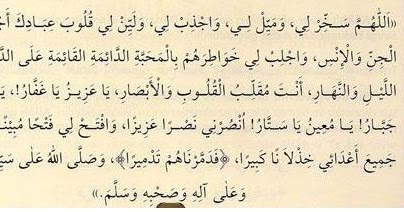 «اَللّٰهُمَّ سَخِّرْ لِي، وَمَيِّلْ لِي، وَاجْذِبْ لِي، وَلَيِّنْ لِي قُلُوبَ عِبَادِكَ
الْجِنِّ وَالْإِنْسِ، وَاجْلِبْ لِي خَوَاطِرَهُمْ بِالْمَحَبَّةِ الدَّائِمَةِ الْقَائِمَةِ عَلَى
اللَّيْلِ وَالنَّهَارِ، أَنْتَ مُقَلِّبُ الْقُلُوبِ وَالْأَبْصَارِ، يَا عَزِيزُ يَا غَفَّارُ!،
جَبَّارُ! يَا مُعِينُ يَا سَتَّارُ! اُنْصُرْنِي نَصْرًا عَزِيزًا، وَافْتَحْ لِي فَتْحًا مُبِينًا
جَمِيعَ أَعْدَائِي خِذْلَا نًا كَبِيرًا، ﴿فَدَمَّرْنَاهُمْ تَدْمِيرًا﴾، وَصَلَّى اللهُ عَلَى
وَعَلَى آلِهِ وَصَحْبِهِ وَسَلَّمَ.»